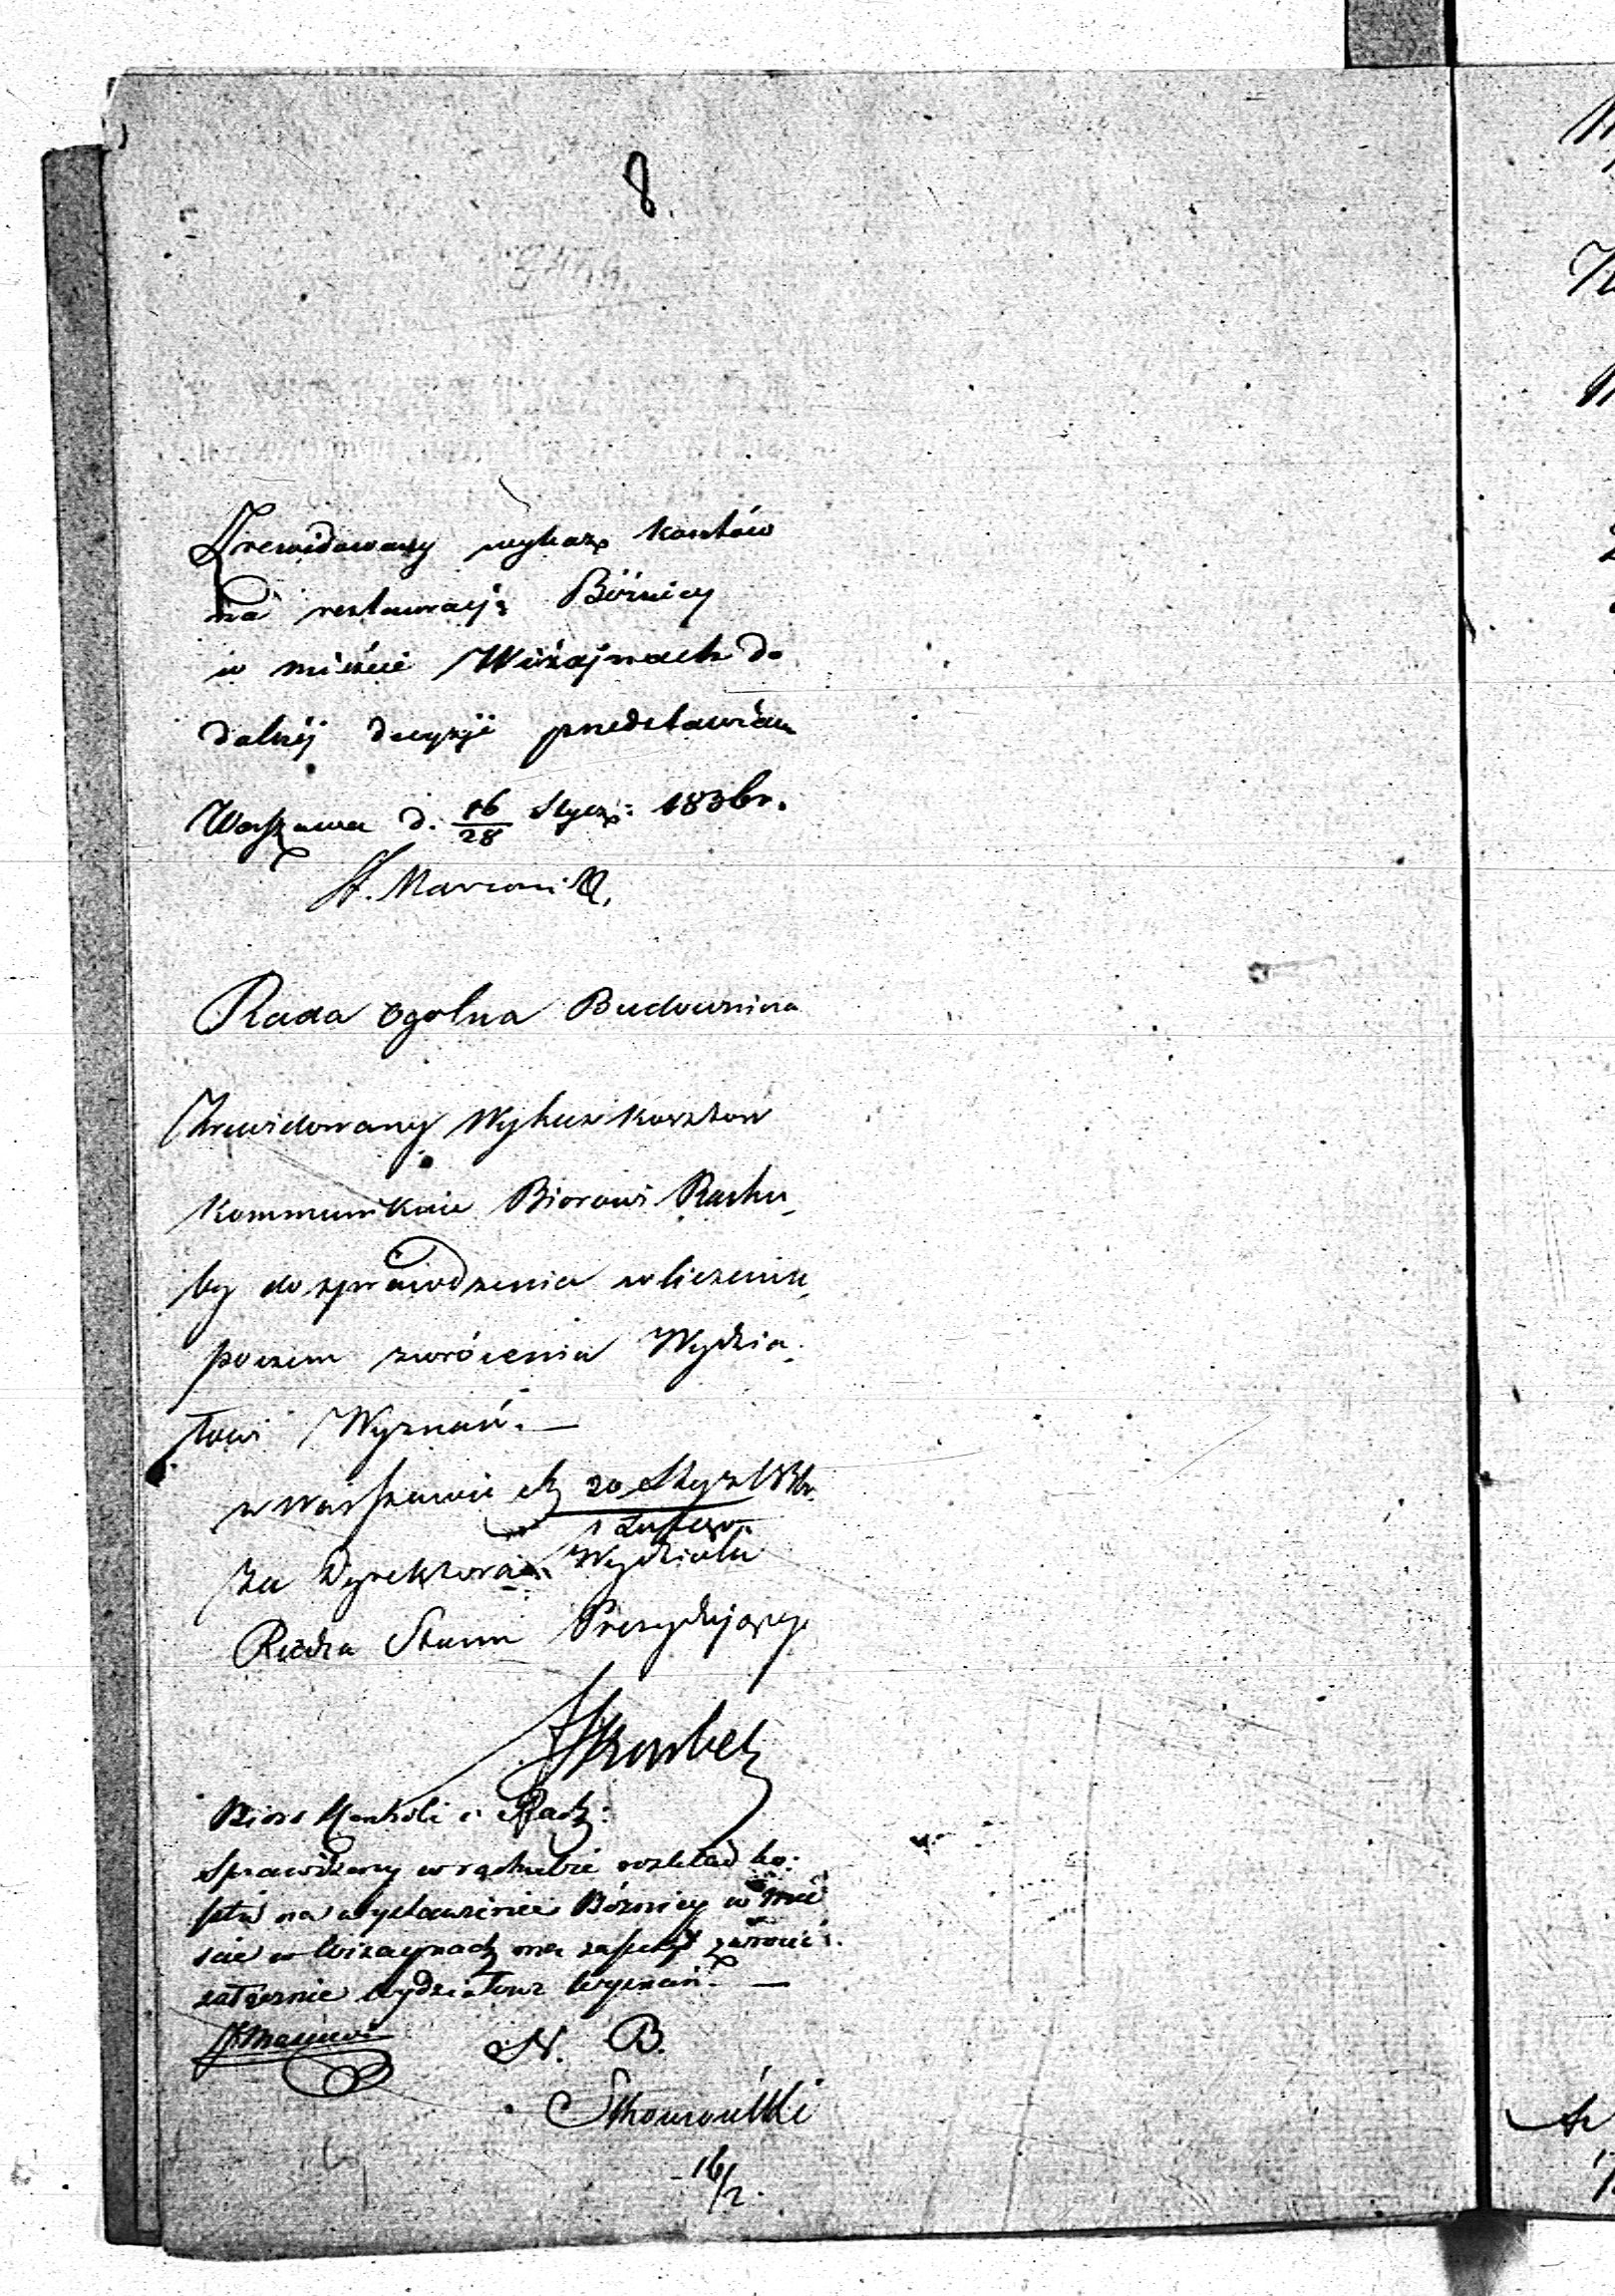 8.
Zrewidowany wykaz kosztów
na restauracją Bóżnicy
w mieście Wiżajnach do
dalszéj decyzyi przedstawiam
Warszawa d. 16/28 Stycz: 1836 r.
H. Marconi
Rada Ogolna Budownicza
Zrewidowany Wykaz kosztow
kommunikuie Biorowi Rachu-
by do sprawdzenia w liczeniu,
poczem zwrócenia Wydzia-
łowi Wyznań. —
w Warszawie d. 20 Stycz / 1 Lutego 1836 r.
Za Dyrektora Wydziału
Radca Stanu Prezydujący
Bioro Kontroli i Rach:
Sprawdzony w rachubie rozkład ko-
sztu na wystawienie Bóżnicy w mie
scie Wizaynach ma zaszczyt zwrocić
załącznie Wydziałowi Wyznań. —
N. B.
16/2.